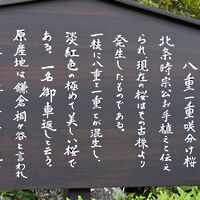 八重一重咲分け桜
北条時宗公お手植えと伝え
られ現在の桜はその古株より
発生したものである。
一枝に八重と一重とが混生し、
淡紅色の極めて美しい桜で
ある。一名御車返しと云う
原産地は鎌倉桐ヶ谷と言われ